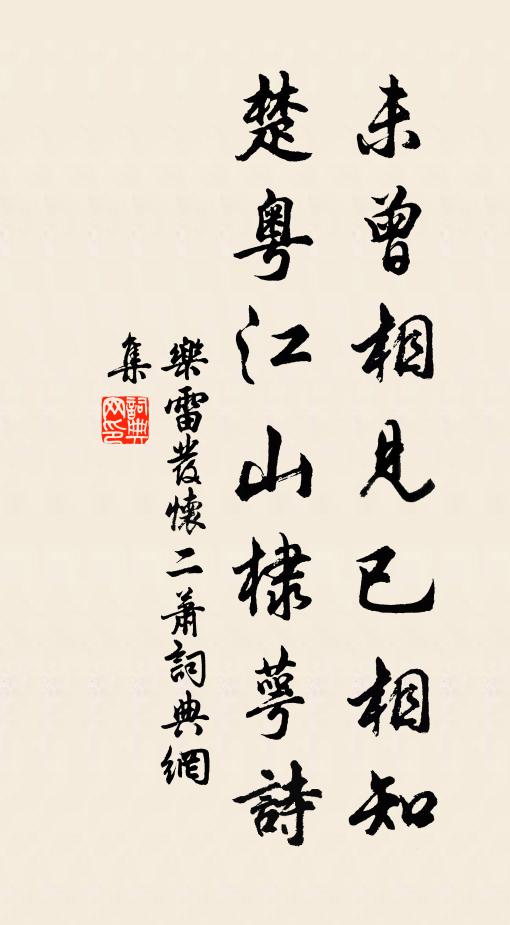 未曾相見已相知
楚粵江山棣萼詩
樂雷發懷二蕭詞典網
集
詞典網印